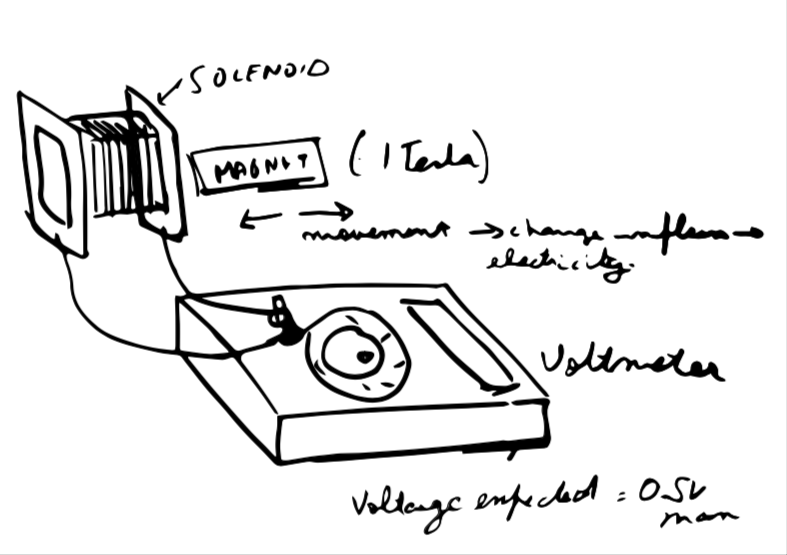 SOLENOID
MAGNET
(1 Tesla)
movement → change in flux →
electricity.
Voltmeter
Voltage expected = 0.5V
max